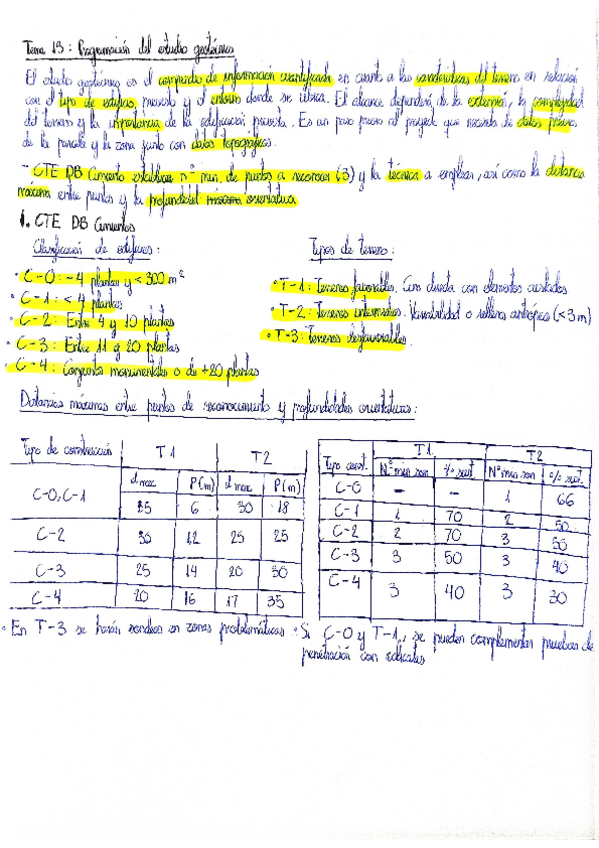 Tema 13: Programación del estudio geotécnico
El estudio geotécnico es el compendio de información cuantificada en cuanto a las características del terreno en relación
con el tipo de edificio previsto y el entorno donde se ubica. El alcance dependerá de la extensión, la complejidad
del terreno y la importancia de la edificación prevista. Es un paso previo al proyecto que necesita de datos previos
de la parcela y la zona junto con datos topográficos.
- CTE DB Cimientos establece nº min. de puntos a reconocer (3) y la técnica a emplear, así como la distancia
máxima entre puntos y la profundidad máxima orientativa
1. CTE DB Cimientos
Clasificación de edificios:
Tipos de terreno:
• C-0: -4 plantas y < 300 m²
• T-1: Terrenos favorables. Cim directa con elementos aislados
• C-1: < 4 plantas
• T-2: Terrenos intermedios. Variabilidad o relleno antrópico (<3 m)
• C-2: Entre 4 y 10 plantas
• T-3: Terrenos desfavorables.
• C-3: Entre 11 y 20 plantas
• C-4: Conjuntos monumentales o de +20 plantas
Distancias máximas entre puntos de reconocimiento y profundidades orientativas:
Tipo de construcción T1 T2
d max P(m) d max P(m)
C-0, C-1 35 6 30 18
C-2 30 12 25 25
C-3 25 14 20 30
C-4 20 16 17 35
Tipo const. T1 T2
Nº min son % sust. Nº min son % sust.
C-0 - - 1 66
C-1 1 70 2 50
C-2 2 70 3 50
C-3 3 50 3 40
C-4 3 40 3 30
• En T-3 se harán sondeos en zonas problemáticas • Si C-0 y T-1, se pueden complementar pruebas de
penetración con calicatas